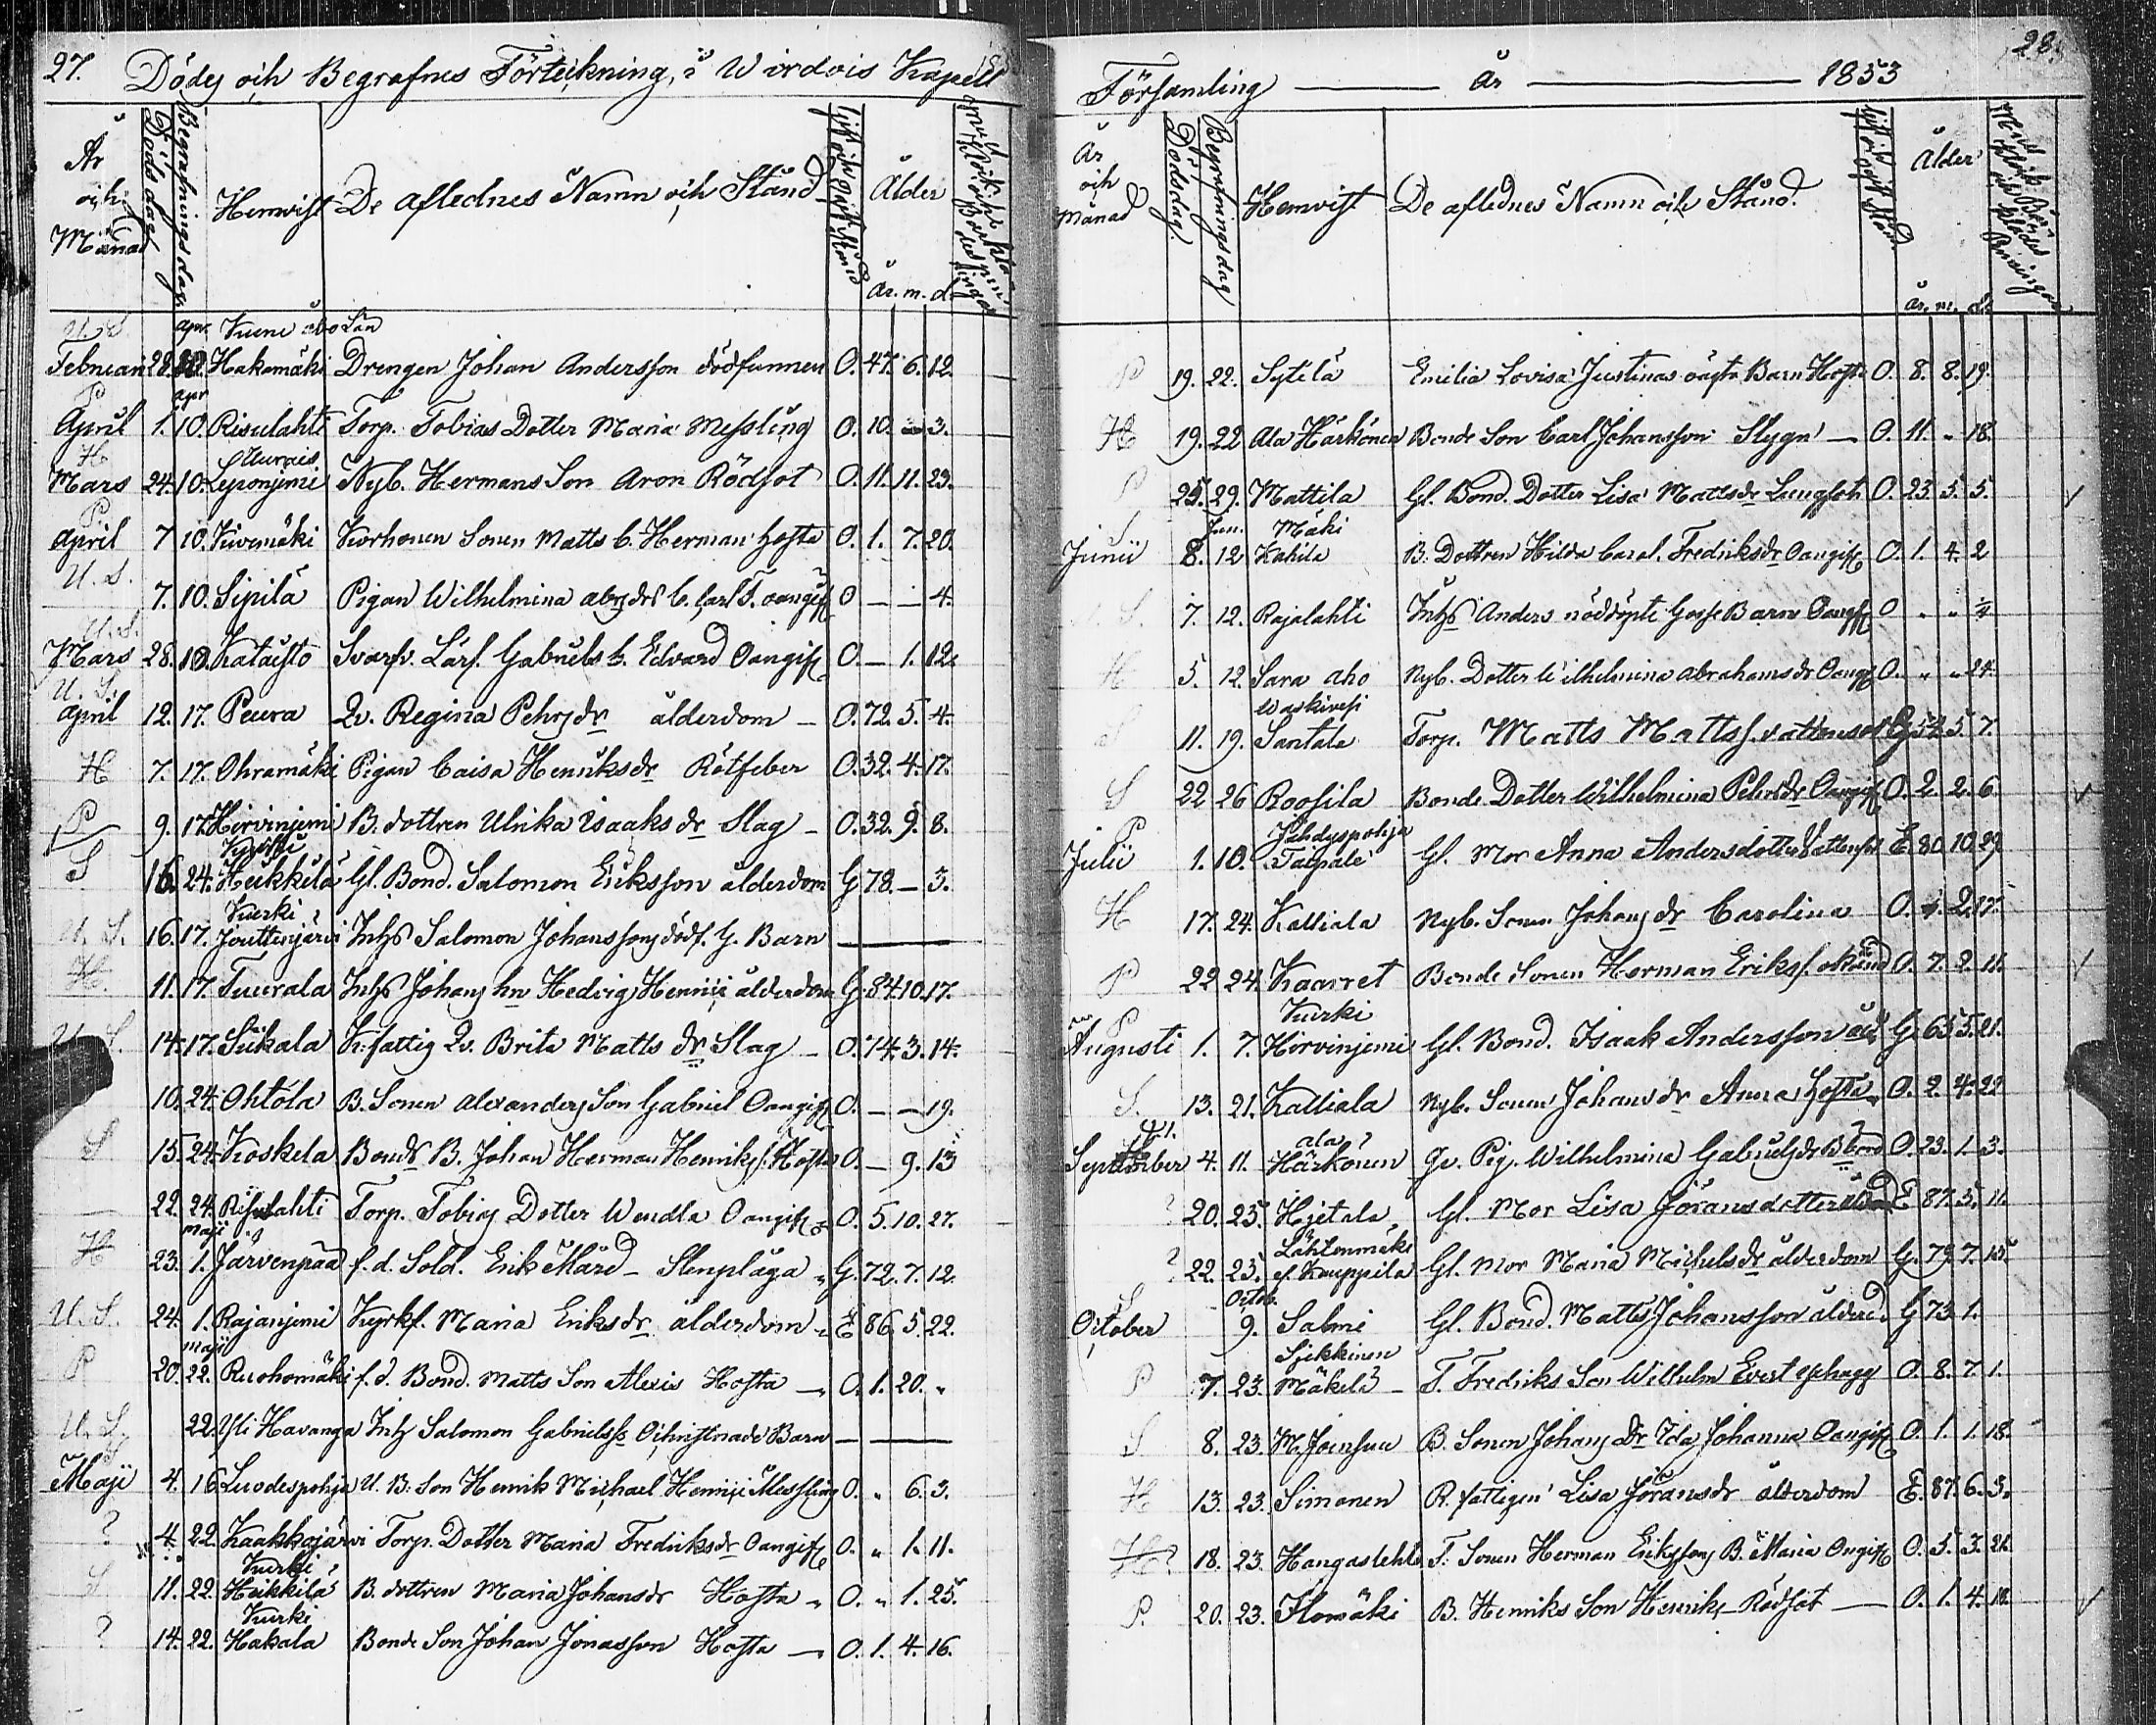 27. Döde och Begrafnes Förteckning, i Wirdois Kapell
År och Månad Dödsdag Begrafningsdag Hemvist De aflednes Namn och Stånd Ålder
År. m. d.
U. S. apr. Kuru Åbo Län
Februari 28. Hakamäki Drengen Johan Andersson dödfunnen O. 47. 6. 12.
P apr
April 1. 10. Risulahti Torp. Tobias Dotter Maria Messling O. 10. 3.
H
Mars 24. 10. Leponjemi Nyb. Hermans Son Aron Rödsot O. 11. 11. 23.
P
April 7 10. Kivimäki Korhonen Sonen Matts b. Herman Hosta O. 1. 7. 20.
U. S.
7. 10. Sipilä Pigan Wilhelmina b. Carl F. oangif O — — 4.
U. S.
Mars 28. 10. Kataisto Svarfv. Lärl. Gabriels b. Edvard Oangif O. — 1. 12.
U. S.
April 12. 17. Peura Qv. Regina Pehrsdr ålderdom — O. 72. 5. 4.
H 7. 17. Ohramäki Pigan Caisa Henriksdr Rötfeber O. 32. 4. 17.
P 9. 17. Hirvinjemi B. dottren Ulrika Isaksdr Slag — O. 32. 9. 8.
S 16. 24. Heikkilä Gl. Bond. Salomon Eriksson ålderdom G 78. — 3.
Kurki
U. S. 16. 17. Jouttenjärvi Inhs Salomon Johanssons dödf. G. Barn
H. 11. 17. Tuurala Inhs Johans hn Hedvig Henric ålderdom G. 84. 10. 17.
U. S. 14. 17. Siikala K: fattig Qv. Brita Matts dr Slag — O. 74. 3. 14.
10. 24. Ohtola B. Sonen Alexanders Son Gabriel Oangif O. — — 19.
S 15. 24. Koskela Bonds B. Johan Herman Henriks. Hosta O. — 9. 13
— 22. 24. Risulahti Torp. Tobias Dotter Wendla Oangif O. 5. 10. 27.
maji
H 23. 1. Järvenpää f. d. Sold. Erik Mård — Stenplåga G. 72. 7. 12.
U. S. 24. 1. Rajanjemi Kyrkf. Maria Eriksdr ålderdom E 86. 5. 22.
maji
P 20. 22. Ruohomäki f. d. Bond. Matts Son Alexis Hosta — O. 1. 20. "
U. S. 22. Yli Havanga Inhs Salomon Gabrielss Ochristnade Barn
Maji 4. 16 Luodespohja U. B. Son Henrik Michael Henric Messling O. " 6. 3.
? 4. 22. Kaakkojärvi Torp. Dotter Maria Fredriksdr Oangif O. " 1. 11.
Kurki
S 11. 22. Heikkilä B. dottren Maria Johansdr Hosta " O. " 1. 25.
Kurki
? 14. 22. Hakala Bonde Son Johan Jonasson Hosta — O. 1. 4. 16.
28.
Församling — År — 1853
År och Månad Dödsdag. Begrafningsdag Hemvist De aflednes Namn och Stånd. Ålder
År. m. d.
P 19. 22. Sytilä Emilia Lovisa Justinas oägta Barn Hosta O. 8. 8. 19.
H 19. 22 Ala Härkönen Bonde Son Carl Johansson Slagen — O. 11. " 18.
P 25. 29. Mattila Gl. Bond. Dotter Lisa Mattsdr Lungsot O. 23. 5. 5.
S Jun. Mäki
Junii 8. 12 Kahila B: Dottren Hilda Carol. Fredriksdr Oangif O. 1. 4. 2
S. 7. 12. Rajalahti Inhs Anders nöddöpte Gosse Barn Oangf O " " ¼
H 5. 12. Sara aho Nyb. Dotter Wilhelmina Abrahamsdr Oangf O. " " 24.
Waskivesi
S 11. 19. Santala Torp. Matts Mattss. vattensot G 52. 5. 7.
S 22 26 Roosila Bonde Dotter Wilhelmina Pehrsdr Oangif O. 2. 2. 6
P Jähdyspohja
Julii 1. 10. Taipale Gl. Mor Anna Andersdotter Vattensot E. 80. 10. 29
H 17. 24. Kalliala Nyb. Sonen Johans dr Carolina O. 2. 17.
P 22 24. Kaarret Bonde Sonen Herman Erikss. okänd O. 7. 2. 11.
P Kurki
Augusti 1. 7. Hirvinjemi Gl. Bond. Isaak Andersson åld. G. 65. 5. 21.
S. 13. 21. Kalliala Nyb. Sonen Johans dr Anna Hosta O. 2. 4. 22
ala
September 4. 11. Härkönen Qv. Pig. Wilhelmina Gabrielsdr O. 23. 1. 3.
? 20. 25. Hjetala Gl. Mor Lisa Göransdotter ålderdom E 87. 5. 11.
Lähtenmäki
? 22. 25. ef. Kauppila Gl. Mor Maria Michelsdr ålderdom G. 79. 7. 15.
S Octob.
October 9. Salmi Gl. Bond. Matts Johansson ålderd. G 73. 1.
Sjekkinen
P 7. 23. Mäkelä — T. Fredriks Son Wilhelm Evert O. 8. 7. 1.
S 8. 23. W. Joensuu B. Sonen Johans Dr Ida Johanna Oangif O. 1. 1. 18.
H 13. 23. Simonen R. fattigen Lisa Göransdr ålderdom E. 87. 6. 3.
H? 18. 23. Hangaslehto T: Sonen Herman Erikssons B. Maria Ongif O. 5. 3. 22.
P. 20. 23. Flomäki B. Henriks Son Henrik — Rödsot — O. 1. 4. 18.